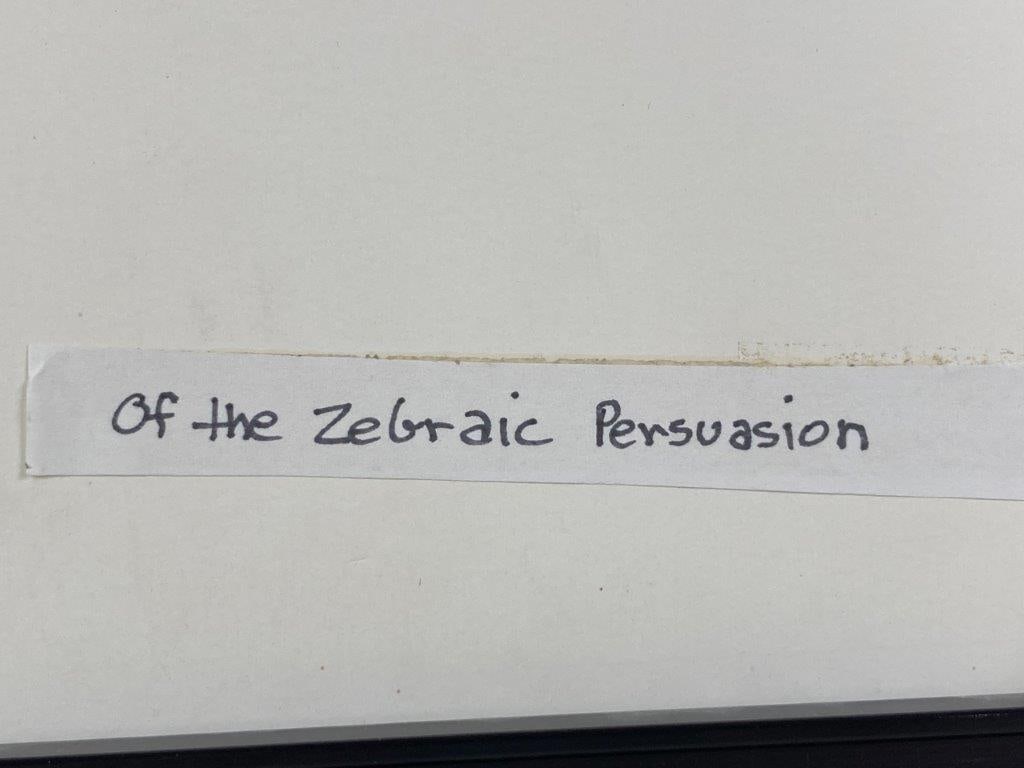 Of the Zebraic Persuasion